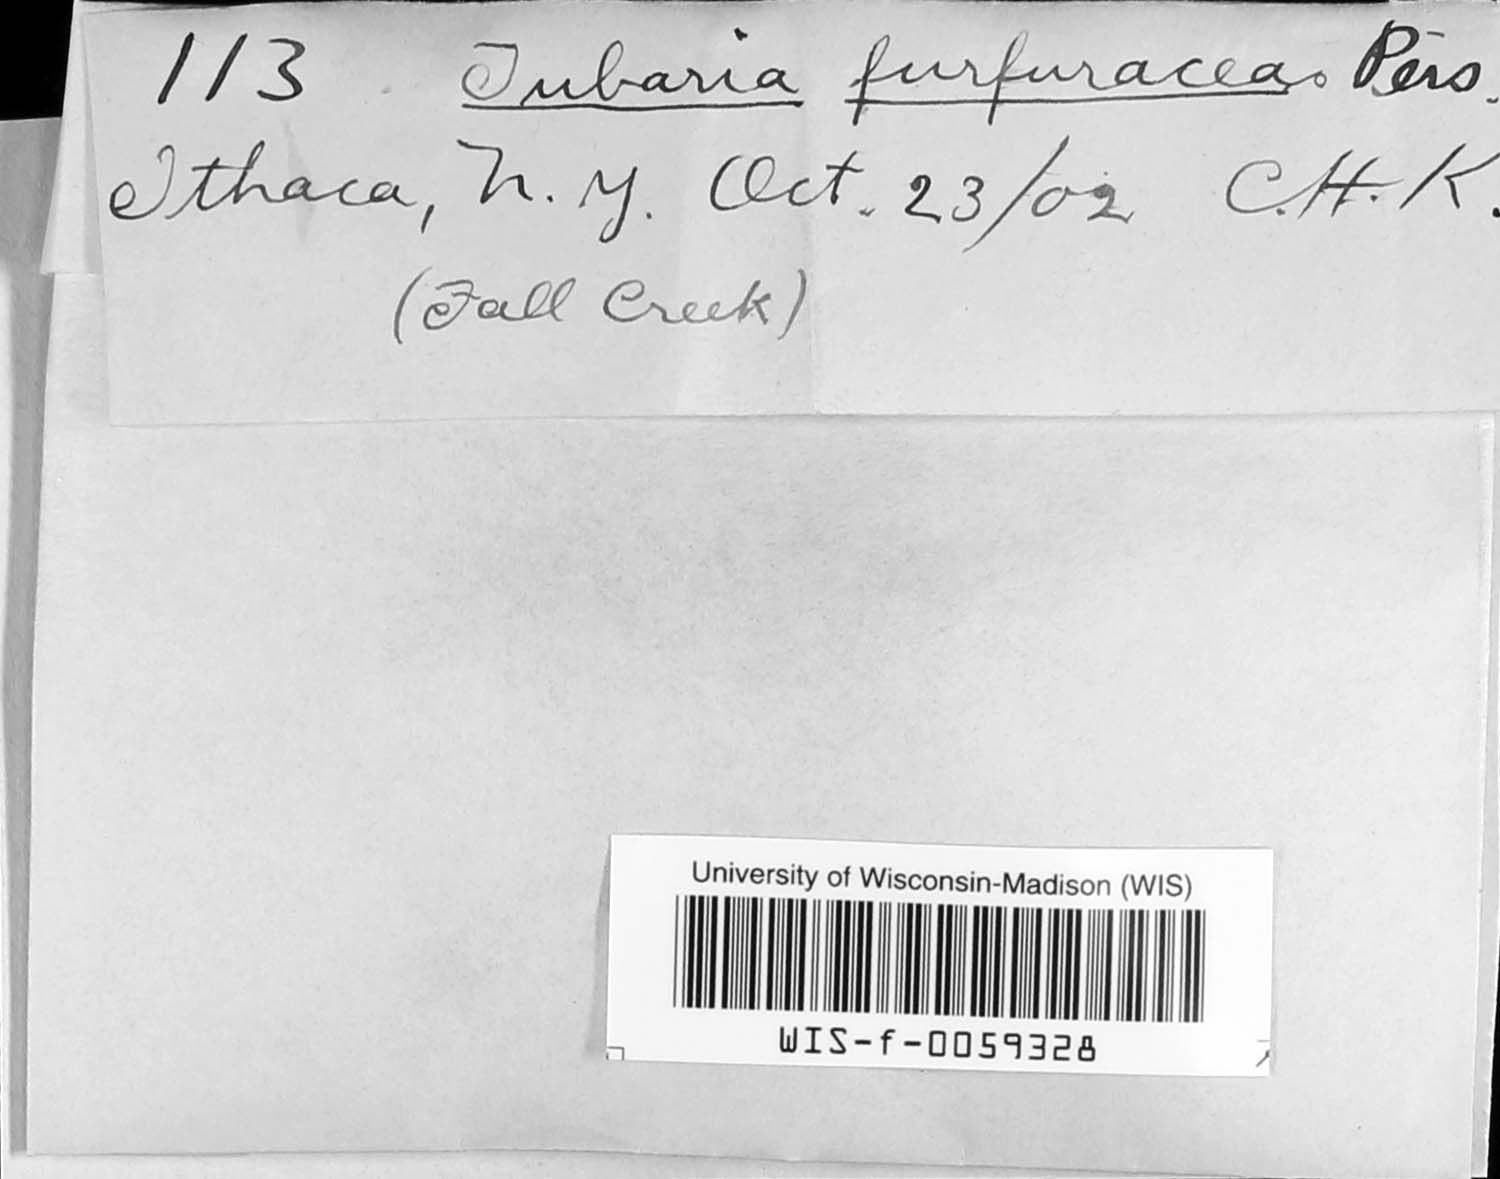 113 Tubaria furfuracea. Pers.
Ithaca, N.Y. Oct. 23/02 C.H.K.
(Fall Creek)
University of Wisconsin-Madison (WIS)
WIS-f-0059328